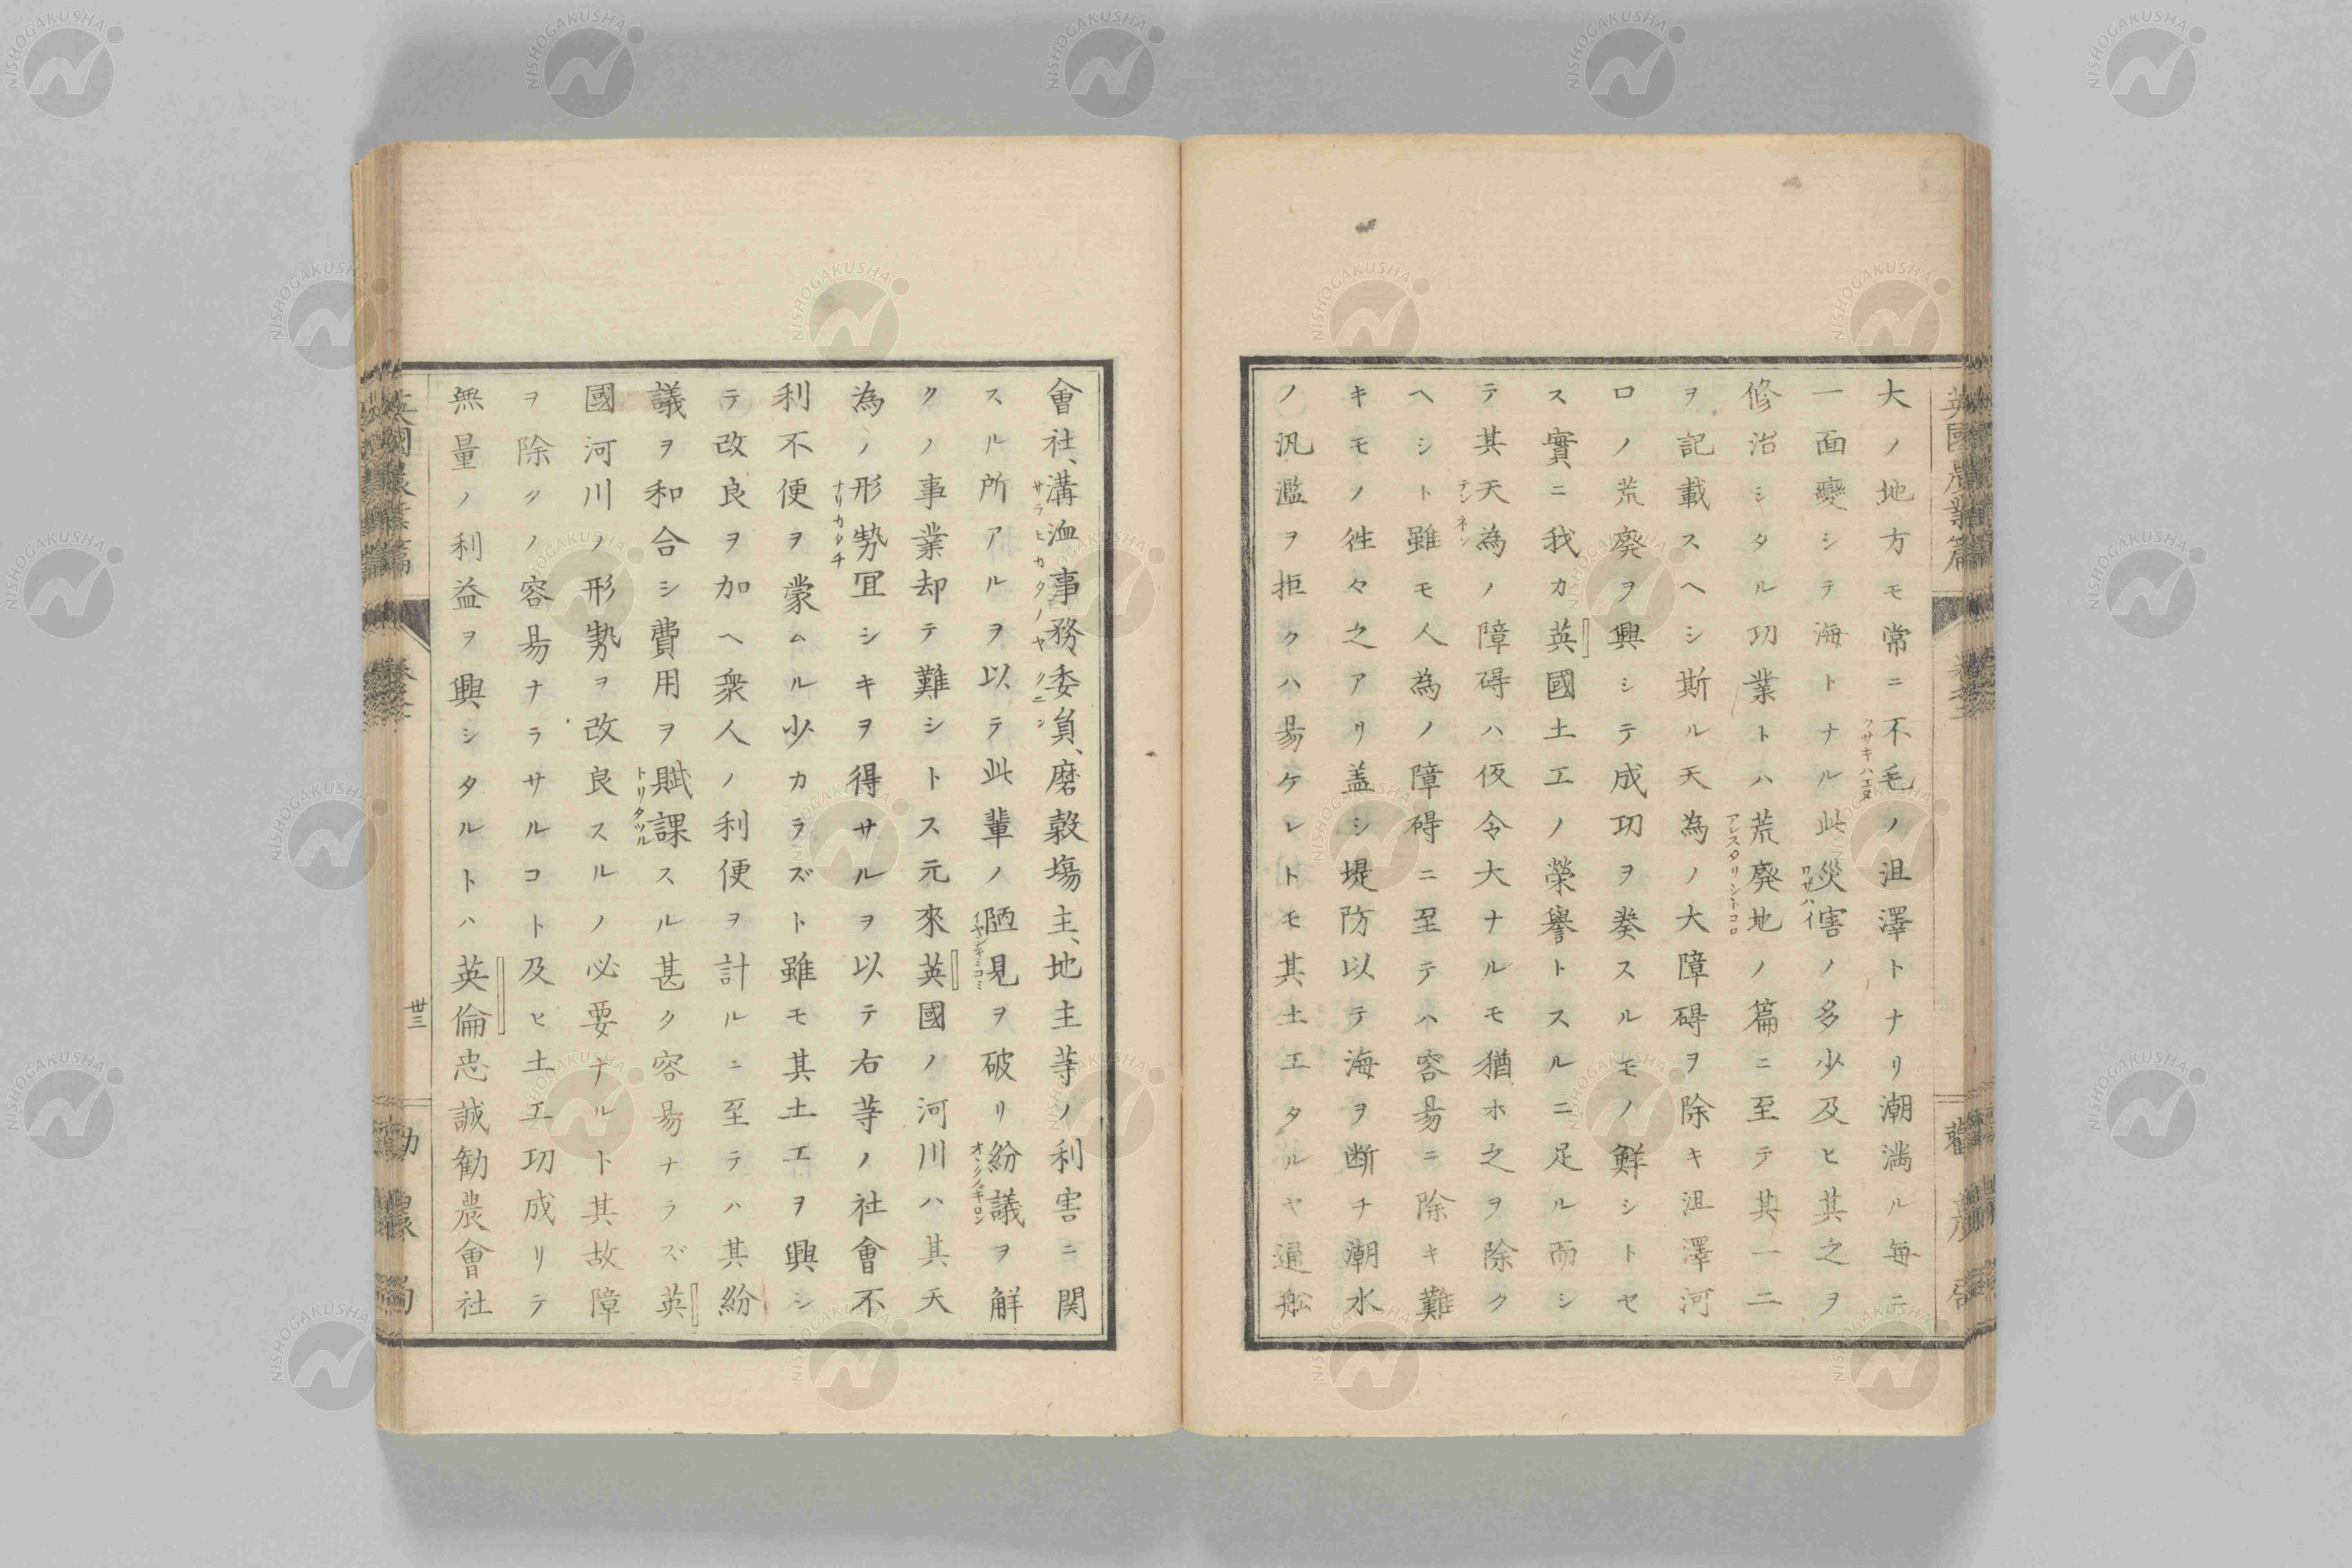 大ノ地方モ常ニ不毛ノ沮澤トナリ潮満ル毎ニ
一面變シテ海トナル此災害ノ多少及ヒ其之ヲ
修治シタル功業トハ荒廃地ノ篇ニ至テ其一二
ヲ記載スヘシ斯ル天為ノ大障碍ヲ除キ沮澤河
口ノ荒廃ヲ興シテ成功ヲ奏スルモノ鮮シトセ
ス實ニ我カ英國土工ノ榮譽トスルニ足ル而シ
テ其天為ノ障碍ハ仮令大ナルモ猶ホ之ヲ除ク
ヘシト雖モ人為ノ障碍ニ至テハ容易ニ除キ難
キモノ徃々之アリ盖シ堤防以テ海ヲ断チ潮水
ノ汎濫ヲ拒クハ易ケレトモ其土工タルヤ通舩
會社、溝洫事務委員、磨穀塲主、地主等ノ利害ニ関
スル所アルヲ以テ此輩ノ陋見ヲ破リ紛議ヲ解
クノ事業却テ難シトス元來英國ノ河川ハ其天
為ノ形勢冝シキヲ得サルヲ以テ右等ノ社會不
利不便ヲ蒙ムル少カラズト雖モ其土工ヲ興シ
テ改良ヲ加ヘ衆人ノ利便ヲ計ルニ至テハ其紛
議ヲ和合シ費用ヲ賦課スル甚ク容易ナラズ英
國河川ノ形勢ヲ改良スルノ必要ナルト其故障
ヲ除クノ容易ナラサルコト及ヒ土工功成リテ
無量ノ利益ヲ興シタルトハ英倫忠誠勧農會社
丗三
フサキハエヌ
ワザハイ
アレスタリシトコロ
テンネン
サラヒカタノヤクニン
イヤシキミコミ
ナリカタチ
トリタツル
NISHOGAKUSHA